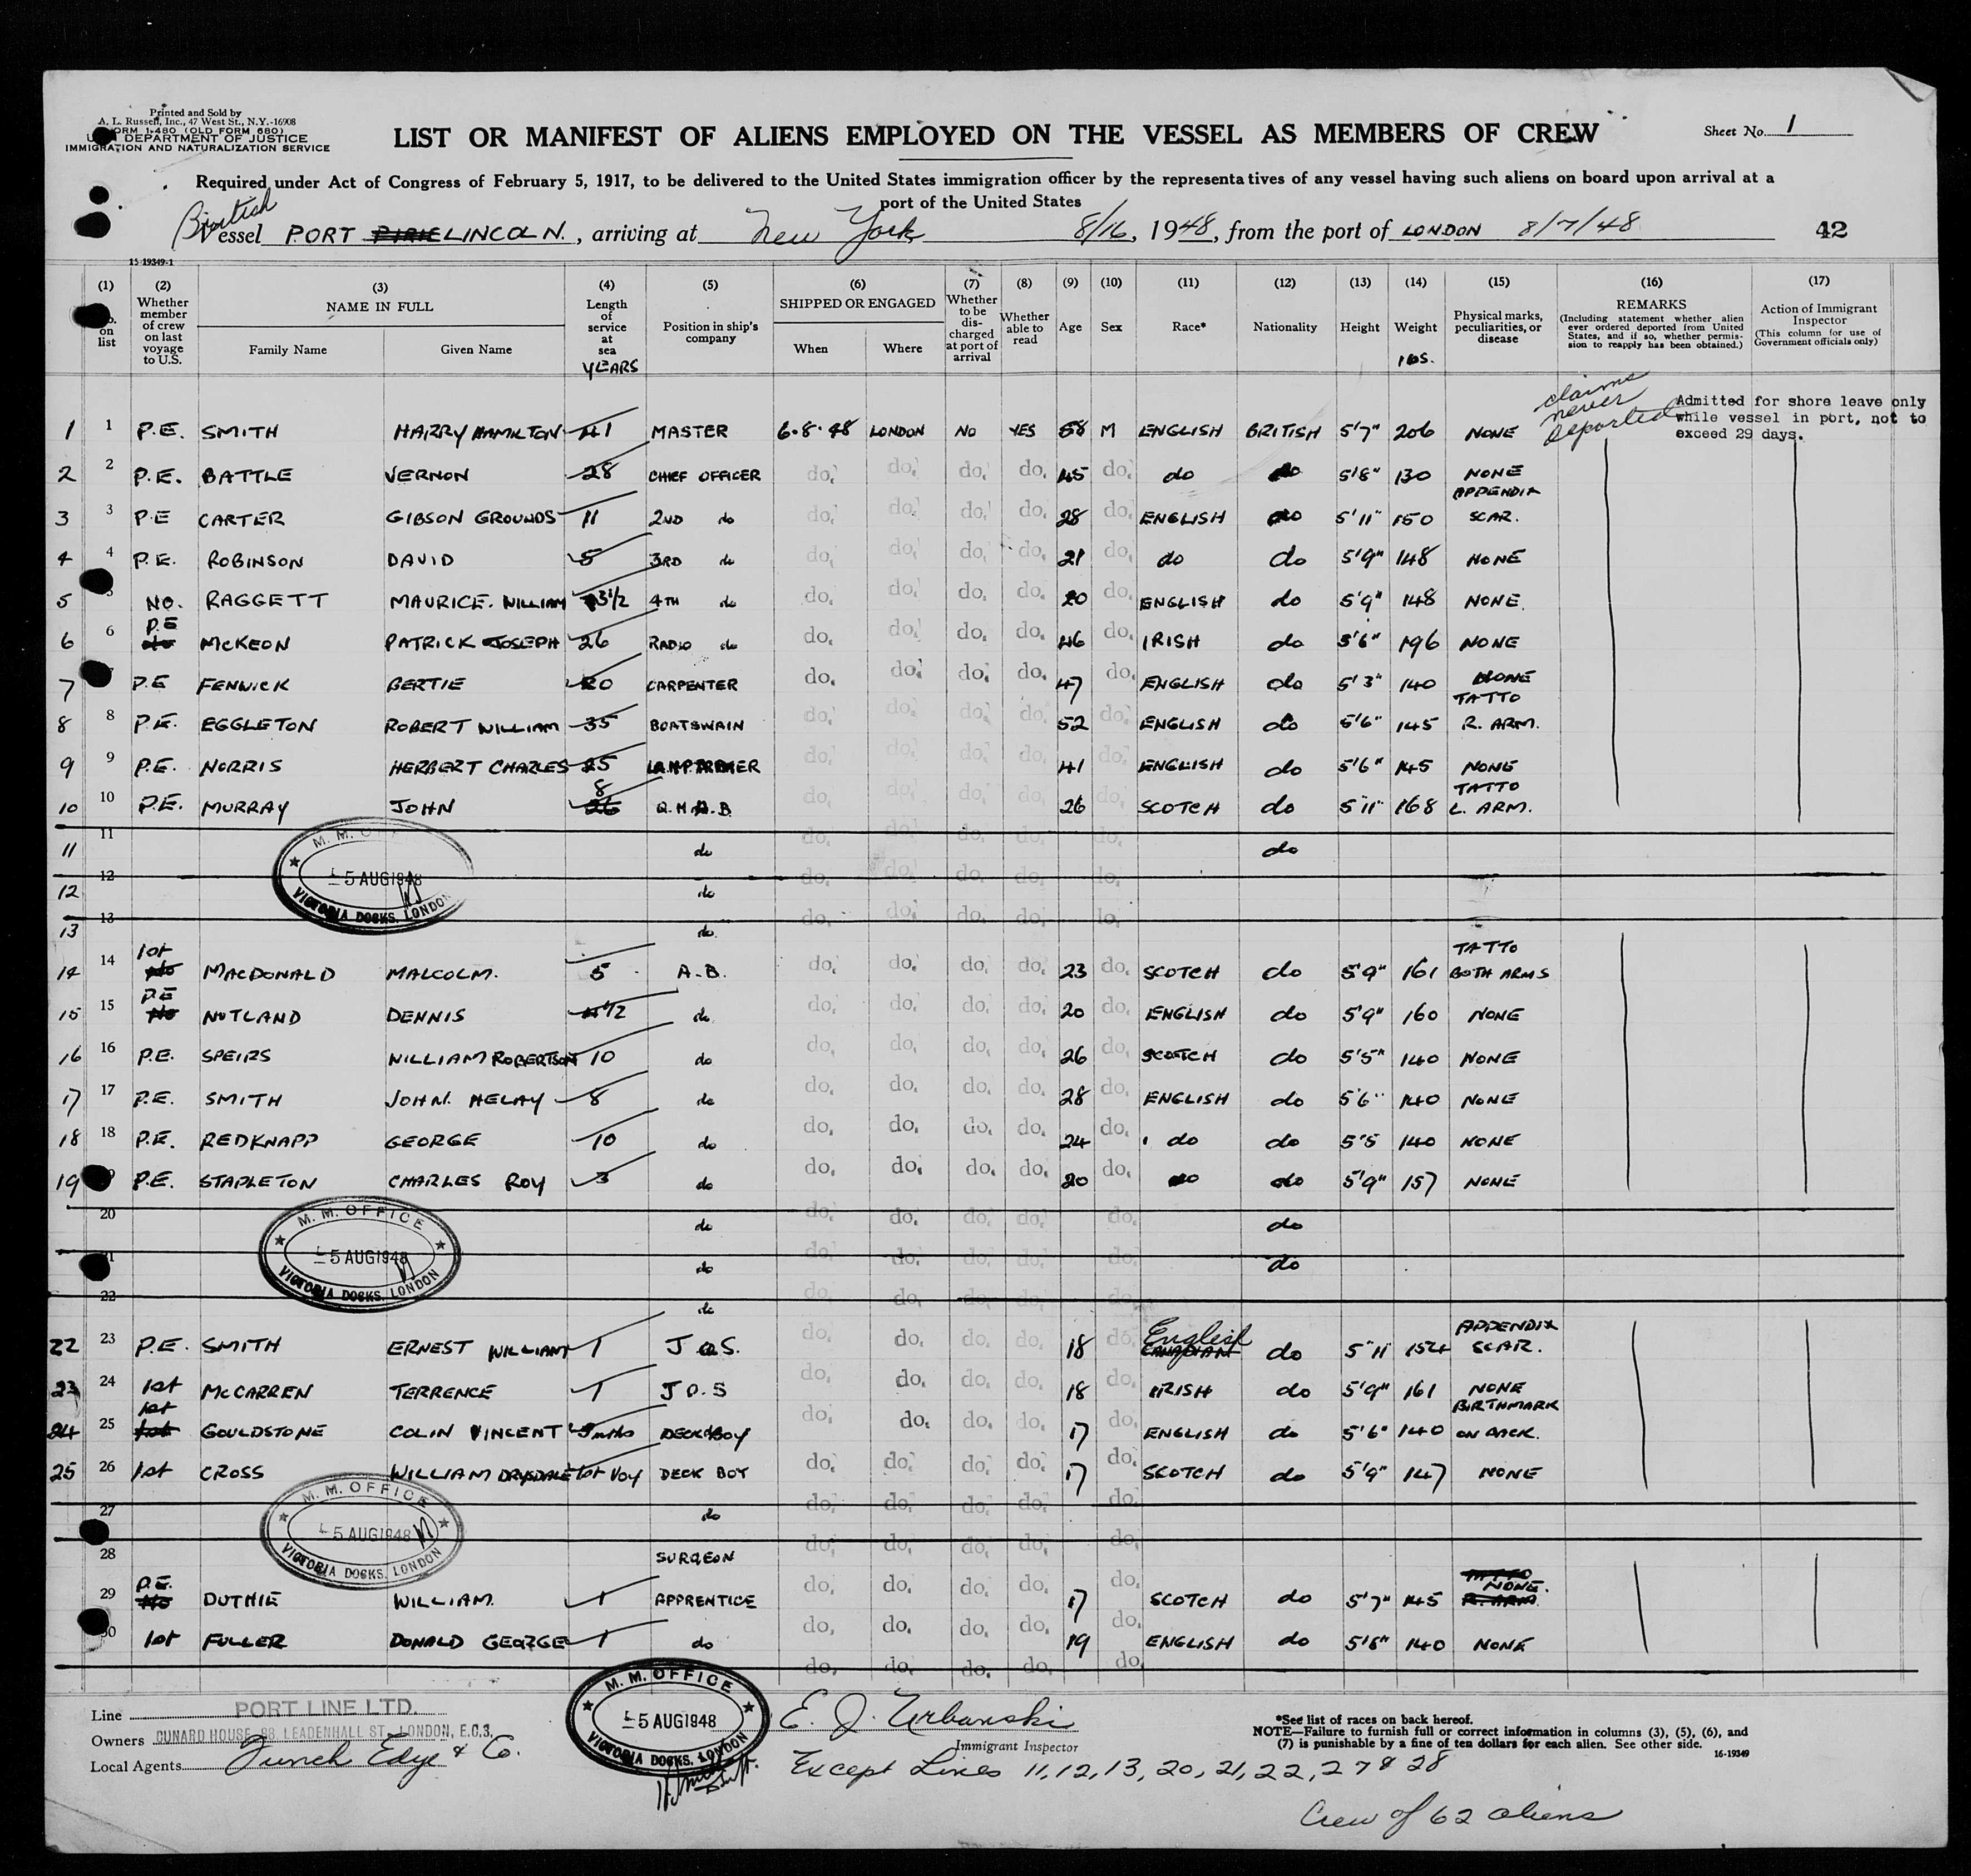 Printed and Sold by
A. L. Russell, Inc., 47 West St., N.Y.-16908
FORM 1-480 (OLD FORM 680)
U. S. DEPARTMENT OF JUSTICE
IMMIGRATION AND NATURALIZATION SERVICE
LIST OR MANIFEST OF ALIENS EMPLOYED ON THE VESSEL AS MEMBERS OF CREW
Sheet No. 1
Required under Act of Congress of February 5, 1917, to be delivered to the United States immigration officer by the representatives of any vessel having such aliens on board upon arrival at a
port of the United States
British
Vessel PORT PIRIE LINCOLN., arriving at New York 8/16, 1948, from the port of LONDON 8/7/48 42
15 19349-1
(1) (2) (3) (4) (5) (6) (7) (8) (9) (10) (11) (12) (13) (14) (15) (16) (17)
No. on list
Whether member of crew on last voyage to U.S.
NAME IN FULL
Family Name Given Name
Length of service at sea YEARS
Position in ship's company
SHIPPED OR ENGAGED
When Where
Whether to be discharged at port of arrival
Whether able to read
Age Sex Race* Nationality Height Weight lbs.
Physical marks, peculiarities, or disease
REMARKS
(Including statement whether alien ever ordered deported from United States, and if so, whether permission to reapply has been obtained.)
Action of Immigrant Inspector
(This column for use of Government officials only)
claims never deported
Admitted for shore leave only
while vessel in port, not to
exceed 29 days.
1 1 P.E. SMITH HARRY HAMILTON 41 MASTER 6.8.48 LONDON NO YES 58 M ENGLISH BRITISH 5'7" 206 NONE
2 2 P.E. BATTLE VERNON 28 CHIEF OFFICER do. do. do. do. 45 do. do do 5'8" 130 NONE
3 3 P.E CARTER GIBSON GROUNDS 11 2ND do do. do. do. do. 28 do. ENGLISH do 5'11" 150 APPENDIX SCAR.
4 4 P.E. ROBINSON DAVID 5 3RD do do. do. do. do. 21 do. do do 5'9" 148 NONE
5 5 NO. RAGGETT MAURICE. WILLIAM 3½ 4TH do do. do. do. do. 20 do. ENGLISH do 5'9" 148 NONE.
6 6 P.E McKEON PATRICK JOSEPH 26 RADIO do do. do. do. do. 46 do. IRISH do 5'6" 196 NONE
7 7 P.E FENWICK BERTIE 20 CARPENTER do. do. do. do. 47 do. ENGLISH do 5'3" 140 NONE
8 8 P.E. EGGLETON ROBERT WILLIAM 35 BOATSWAIN do. do. do. do. 52 do. ENGLISH do 5'6" 145 TATTO R. ARM.
9 9 P.E. NORRIS HERBERT CHARLES 25 LAMPTRIMER do. do. do. do. 41 do. ENGLISH do 5'6" 145 NONE
10 10 P.E. MURRAY JOHN 8 26 Q.M.A.B. do. do. do. do. 26 do. SCOTCH do 5'11" 168 TATTO L. ARM.
11 11 do do. do. do. do. do. do
12 12 do do. do. do. do. do.
13 13 do. do. do. do. do. do.
M. M. OFFICE
5 AUG 1948
VICTORIA DOCKS, LONDON
14 14 1st No MACDONALD MALCOLM. 5 A.B. do. do. do. do. 23 do. SCOTCH do 5'9" 161 TATTO BOTH ARMS
15 15 P.E No NUTLAND DENNIS 4½ do do. do. do. do. 20 do. ENGLISH do 5'9" 160 NONE
16 16 P.E. SPEIRS WILLIAM ROBERTSON 10 do do. do. do. do. 26 do. SCOTCH do 5'5" 140 NONE
17 17 P.E. SMITH JOHN. HELAY 8 do do. do. do. do. 28 do. ENGLISH do 5'6" 140 NONE
18 18 P.E. REDKNAPP GEORGE 10 do do. do. do. do. 24 do. do do 5'5 140 NONE
19 19 P.E. STAPLETON CHARLES ROY 3 do do. do. do. do. 20 do. do do 5'9" 157 NONE
20 do do. do. do. do. do. do
21 do do. do. do. do. do. do
22 do do. do. do. do. do.
M. M. OFFICE
5 AUG 1948
VICTORIA DOCKS, LONDON
22 23 P.E. SMITH ERNEST WILLIAM 1 J.O.S. do. do. do. do. 18 do. English CANADIAN do 5'11 154 APPENDIX SCAR.
23 24 1st McCARREN TERRENCE 1 J O.S do. do. do. do. 18 do. IRISH do 5'9" 161 NONE
24 25 1st 1st GOULDSTONE COLIN VINCENT 5 mths DECK BOY do. do. do. do. 17 do. ENGLISH do 5'6" 140 BIRTHMARK ON BACK.
25 26 1st CROSS WILLIAM DRYSDALE 1st Voy DECK BOY do. do. do. do. 17 do. SCOTCH do 5'9" 147 NONE
27 do do. do. do. do. do.
28 SURGEON do. do. do. do. do.
M. M. OFFICE
5 AUG 1948
VICTORIA DOCKS, LONDON
29 P.E. No DUTHIE WILLIAM. 1 APPRENTICE do. do. do. do. 17 do. SCOTCH do 5'7" 145 TATTO NONE. R. ARM.
30 1st FULLER DONALD GEORGE 1 do do. do. do. do. 19 do. ENGLISH do 5'8" 140 NONE
do. do. do. do. do.
Line PORT LINE LTD.
Owners CUNARD HOUSE, 88 LEADENHALL ST., LONDON, E.C.3.
Local Agents Funch Edye & Co.
M. M. OFFICE
5 AUG 1948
VICTORIA DOCKS, LONDON
E. J. Urbanski
Immigrant Inspector
Except Lines 11, 12, 13, 20, 21, 22, 27 & 28
Crew of 62 aliens
*See list of races on back hereof.
NOTE—Failure to furnish full or correct information in columns (3), (5), (6), and
(7) is punishable by a fine of ten dollars for each alien. See other side.
16-19349